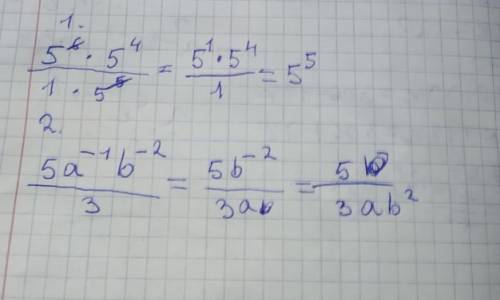 1.
5⁶ · 5⁴ / 1 · 5⁵ = 5¹ · 5⁴ / 1 = 5⁵
2.
5a⁻¹b⁻² / 3 = 5b⁻² / 3a = 5 / 3ab²